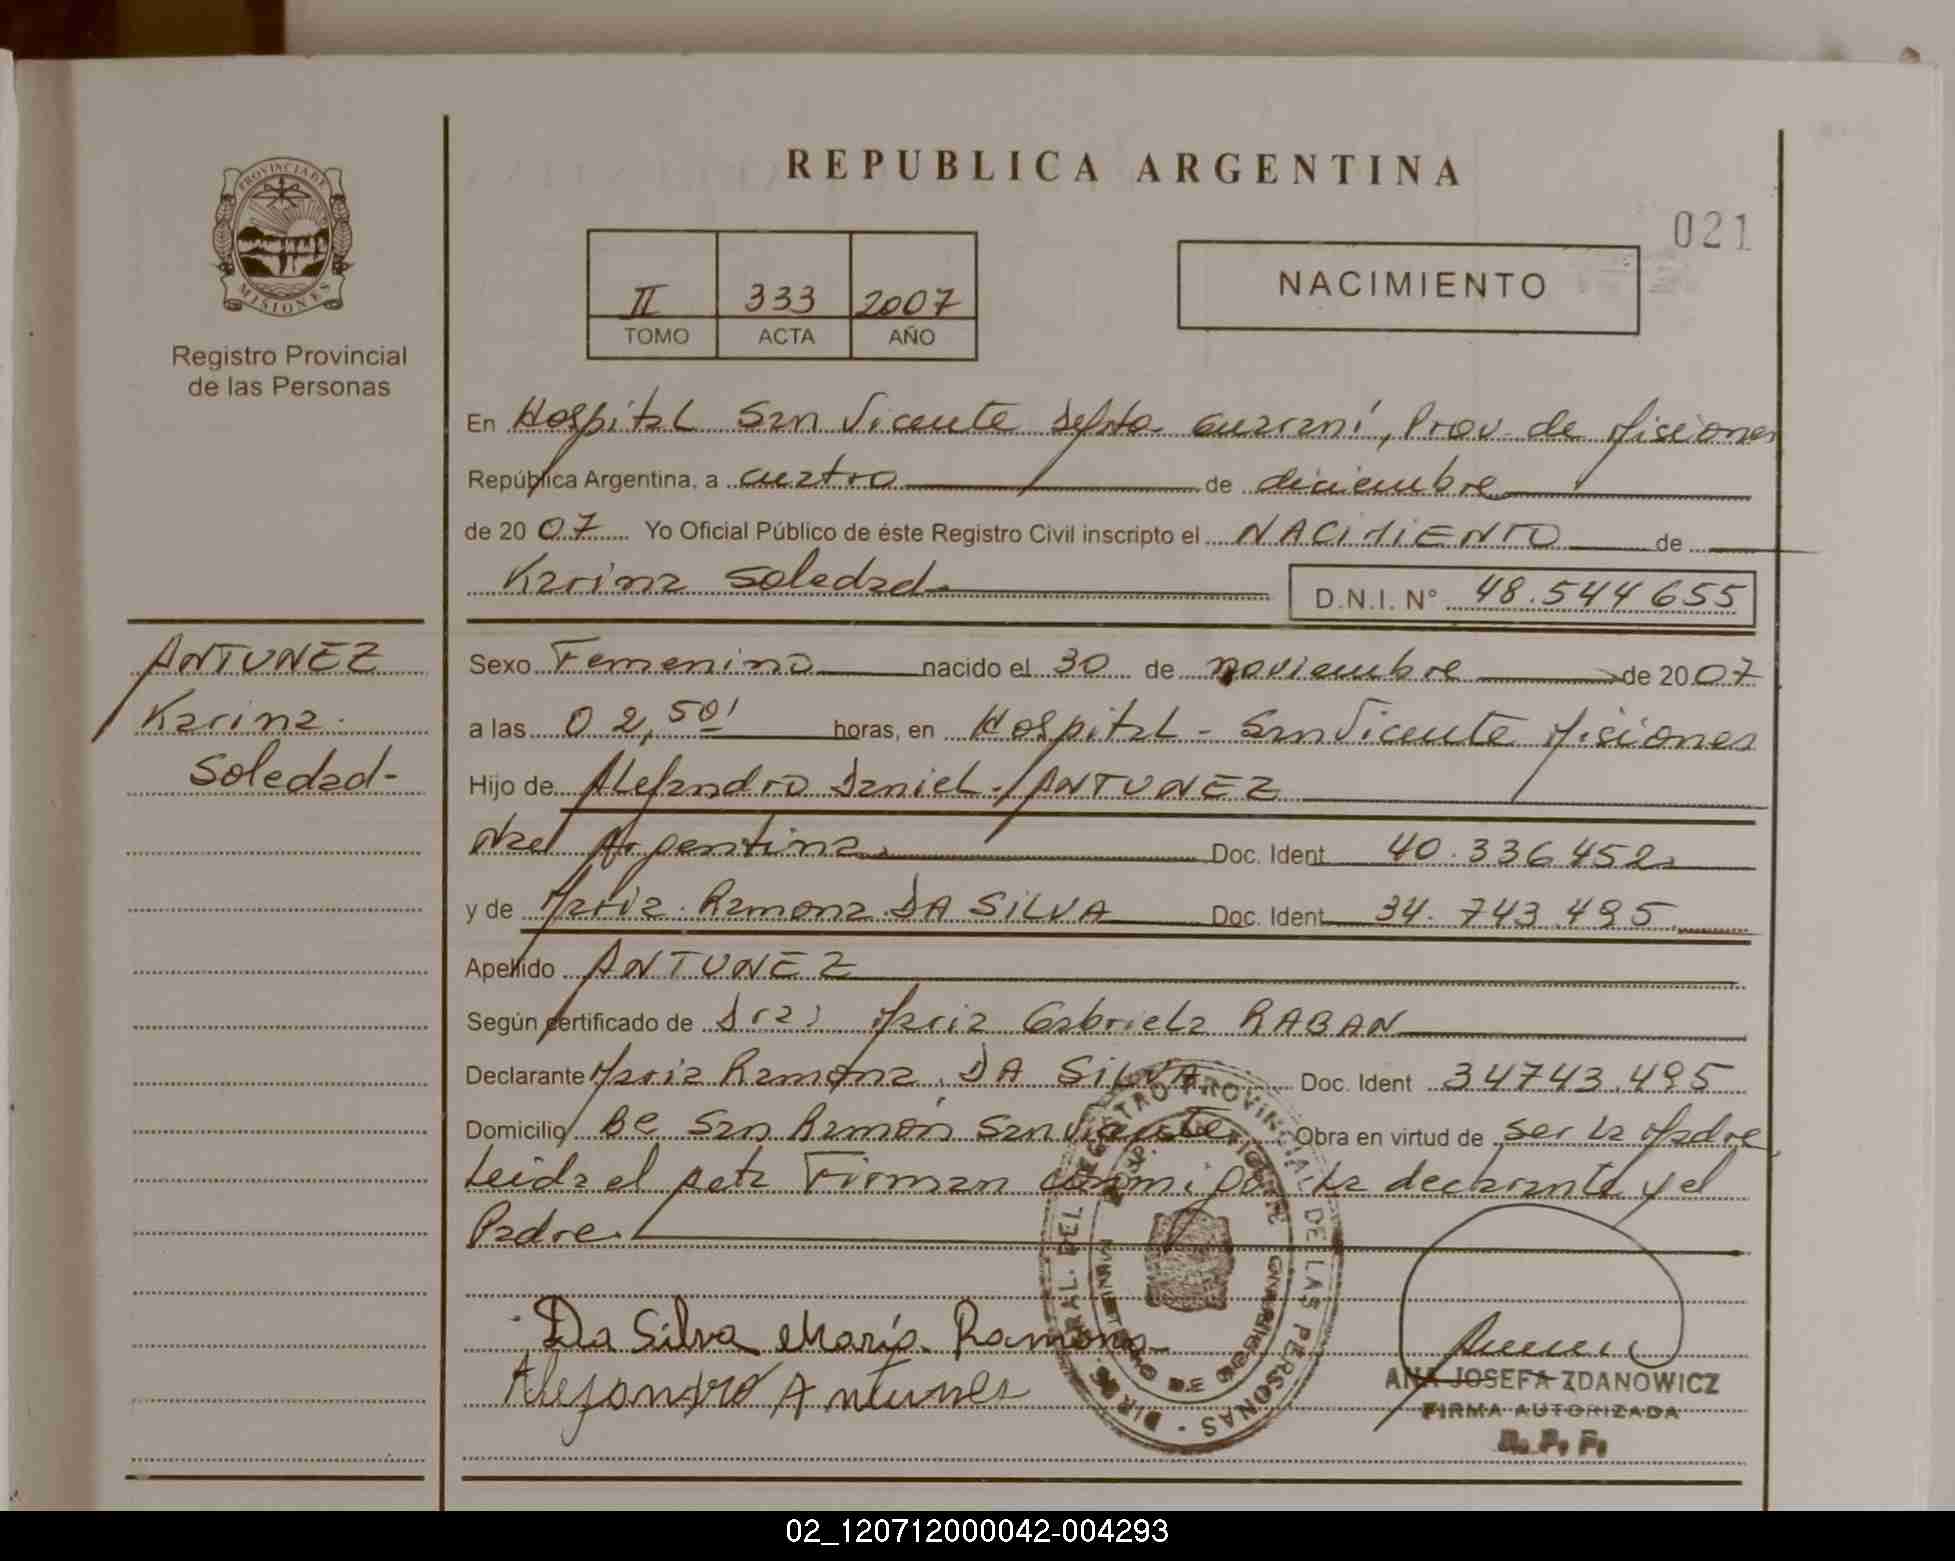 REPUBLICA ARGENTINA
021
PROVINCIA DE
MISIONES
Registro Provincial
de las Personas
II 333 2007
TOMO ACTA AÑO
NACIMIENTO
En Hospital San Vicente Depto Guaraní, Prov. de Misiones
República Argentina, a cuatro de diciembre
de 2007 Yo Oficial Público de éste Registro Civil inscripto el NACIMIENTO de
Karina Soledad D.N.I. N° 48.544655
ANTUNEZ
Karina
Soledad-
Sexo Femenino nacido el 30 de noviembre de 2007
a las 02,50' horas, en Hospital - San Vicente Misiones
Hijo de Alejandro Daniel ANTUNEZ
Nac Argentina Doc. Ident 40.336.452
y de María Ramona DA SILVA Doc. Ident 34.743.495
Apellido ANTUNEZ
Según certificado de Dra: Maria Gabriela RABAN
Declarante Maria Ramona DA SILVA Doc. Ident 34743.495
Domicilio Bº San Ramón San Vicente Obra en virtud de ser la Madre
Leida el acta Firman conmigo la declarante y el
Padre.
Da Silva María Ramona
Alejandro Antunes
DIR. GRAL. DEL REGISTRO PROVINCIAL DE LAS PERSONAS
ANA JOSEFA ZDANOWICZ
FIRMA AUTORIZADA
R. P. P.
02_120712000042-004293